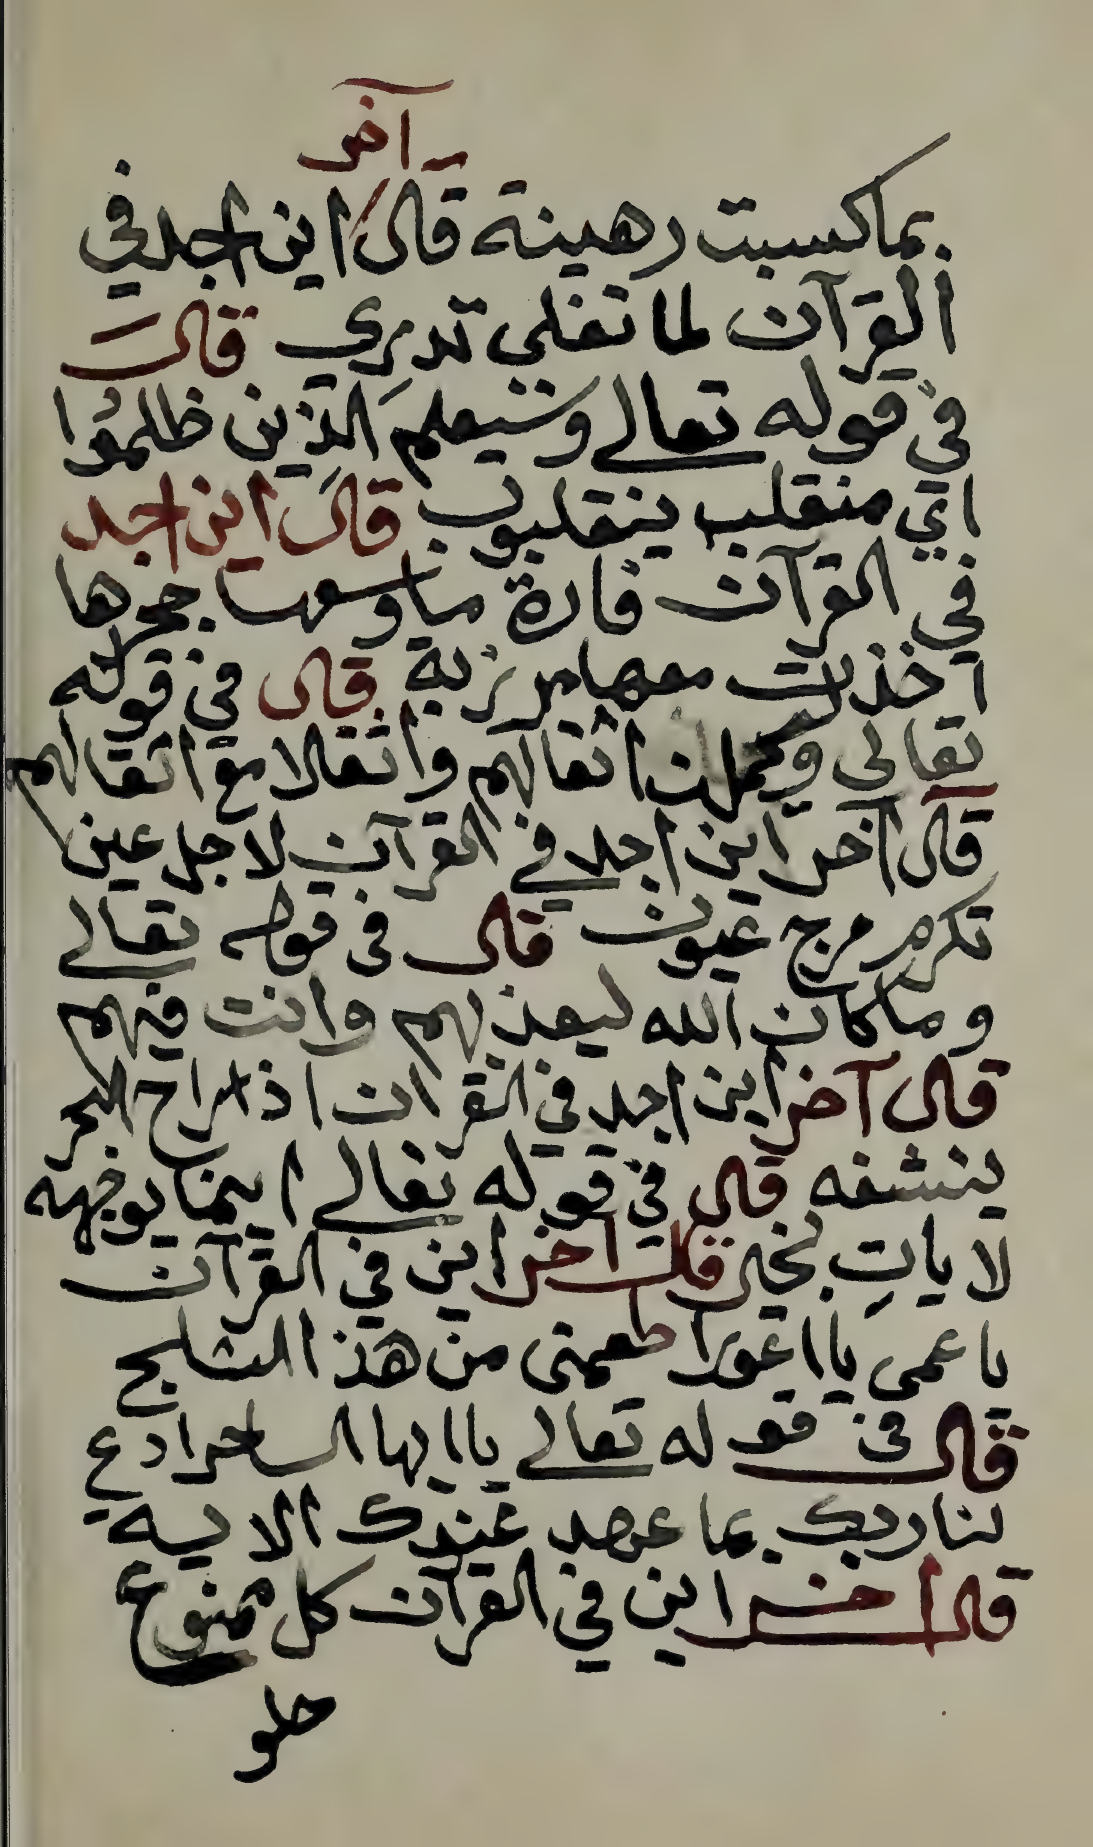 آخر
بما كسبت رهينة قال اين اجد في
القرآن لما تغلى تدري قال
في قوله تعالى وسيعلم الذين ظلموا
اي منقلب ينقلبون قال اين اجد
في القرآن فارة ما وسعها جحرها
اخذت معها مرزبة قال في قوله
تعالى وليحملن اثقالهم واثقالا مع اثقالهم
قال آخر اين اجد في القرآن لاجل عين
تكرم مرج عيون قال في قوله تعالى
وما كان الله ليعذبهم وانت فيهم
قال آخر اين اجد في القران اذا راح البحر
ينشفه قال في قوله تعالى اينما يوجهه
لا ياتِ بخير قال اخر اين في القرآن
يا عمى يا اعور اطعمنى من هذ الثلج
قال في قوله تعالى يا ايها الساحر ادع
لنا ربك بما عهد عندك الاية
قال اخر اين في القرآن كل ممنوع
حلو